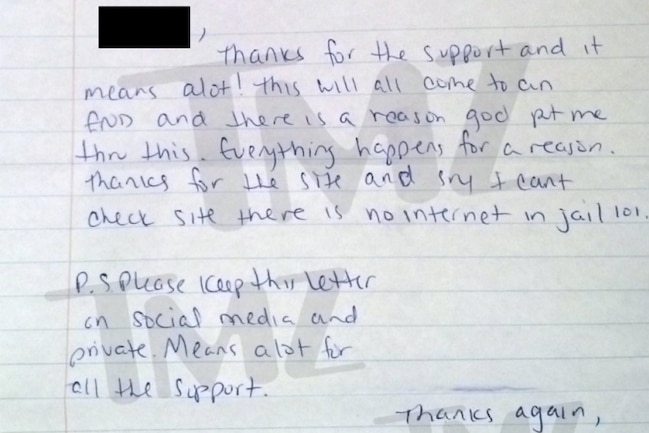 ,
Thanks for the support and it
means alot! This will all come to an
END and there is a reason god put me
thru this. Everything happens for a reason.
Thanks for the site and sry I cant
check site there is no internet in jail lol.
P.S Please keep this letter
on social media and
private. Means alot for
all the support.
Thanks again,
TMZ
TMZ